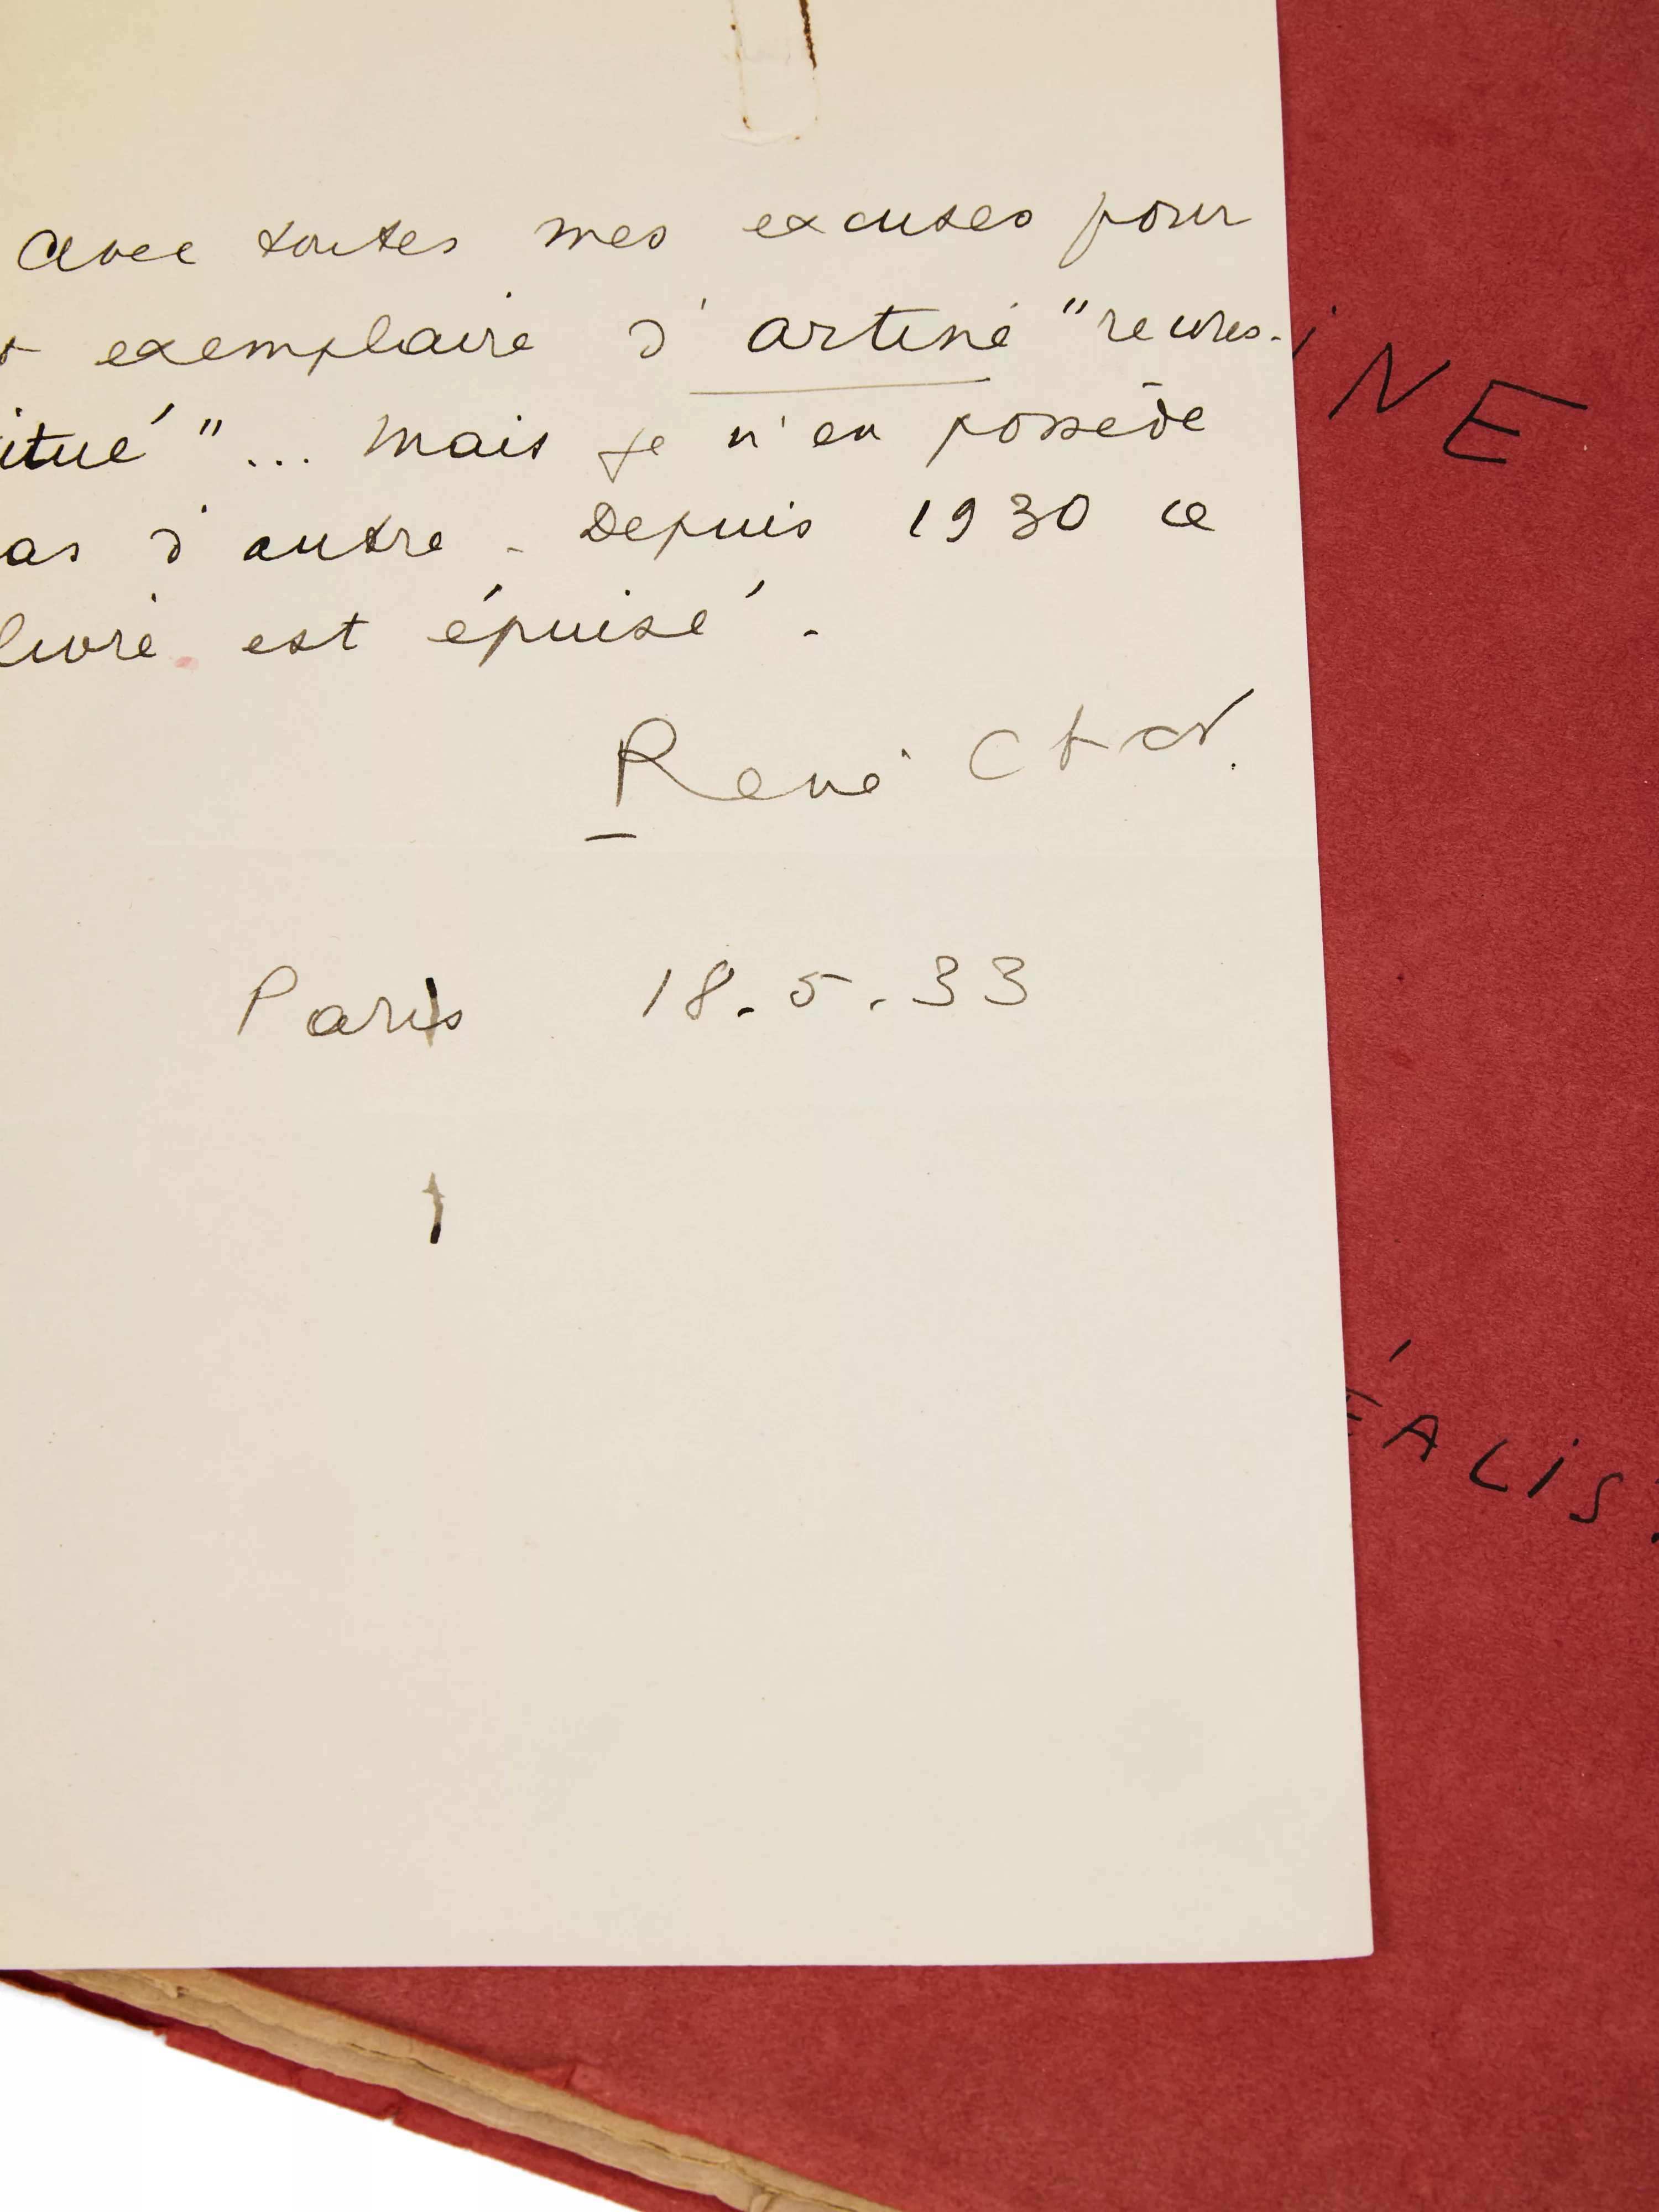 avec toutes mes excuses pour
exemplaire d'artine "recons-
itué"... Mais je n'en possède
as d'autre. Depuis 1930 ce
livre est épuisé.
René Char.
Paris 18.5.33
iNE
ÉALiS